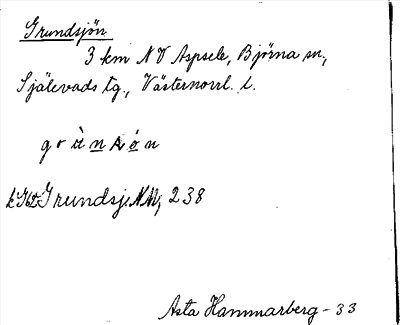 Grundsjön
3 km NV Aspsele, Björna sn,
Själevads tg., Västernorrl. l.
Grundsj. NM, 238
Asta Hammarberg - 33